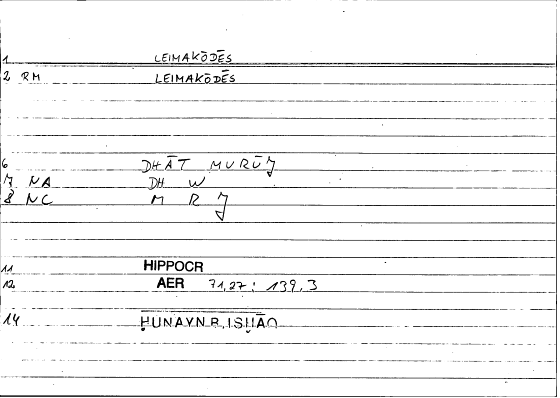 1 LEIMAKŌDĒS
2 RM LEIMAKŌDĒS
6 DHĀT MURŪJ
7 NA DH W
8 NC M R J
11 HIPPOCR
12 AER 71,27 : 139,3
14 ḤUNAYN B. ISḤĀQ